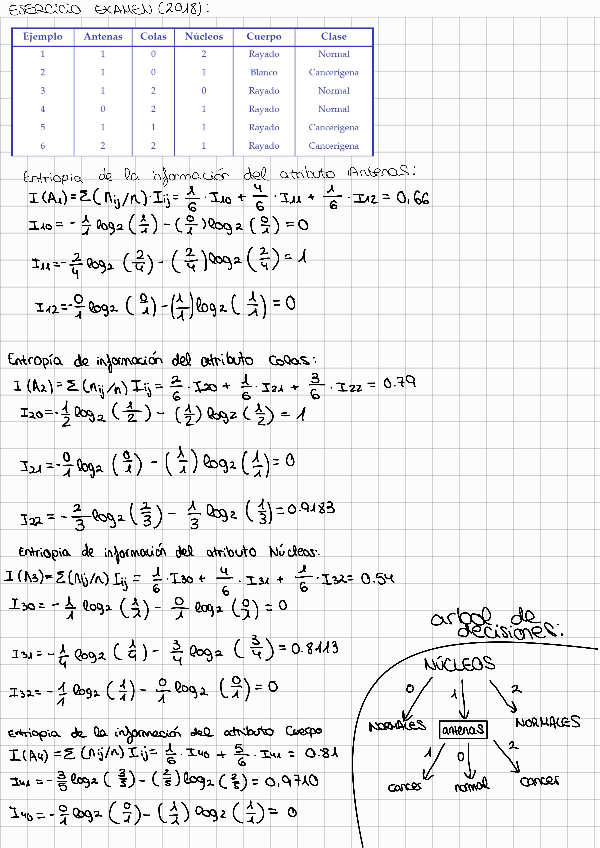 EJERCICIO EXAMEN (2018):
Ejemplo Antenas Colas Núcleos Cuerpo Clase
1 1 0 2 Rayado Normal
2 1 0 1 Blanco Cancerígena
3 1 2 0 Rayado Normal
4 0 2 1 Rayado Normal
5 1 1 1 Rayado Cancerígena
6 2 2 1 Rayado Cancerígena
Entriopia de la información del atributo Antenas:
I(A₁)=Σ(nij/n)·Iij= 1/6 · I10 + 4/6 · I11 + 1/6 · I12 = 0,66
I10= - 1/1 log2 (1/1) - (0/1)log2 (0/1) = 0
I11=- 2/4 log2 (2/4) - (2/4)log2 (2/4) = 1
I12=- 0/1 log2 (0/1) -(1/1)log2 (1/1) = 0
Entropía de información del atributo Colas:
I(A2)= Σ(nij/n) Iij = 2/6 · I20 + 1/6 · I21 + 3/6 · I22 = 0.79
I20=- 1/2 log2 (1/2) - (1/2) log2 (1/2) = 1
I21=- 0/1 log2 (0/1) - (1/1) log2 (1/1) = 0
I22= - 2/3 log2 (2/3) - 1/3 log2 (1/3) = 0.9183
Entriopia de información del atributo Núcleos:
I(A3)= Σ(nij/n) Iij = 1/6 · I30 + 4/6 · I31 + 1/6 · I32= 0.54
I30= - 1/1 log2 (1/1) - 0/1 log2 (0/1) = 0
I31= - 1/4 log2 (1/4) - 3/4 log2 (3/4) = 0.8113
I32= - 1/1 log2 (1/1) - 0/1 log2 (0/1) = 0
Entriopia de la información del atributo Cuerpo
I(A4)= Σ(nij/n) Iij= 1/6 · I40 + 5/6 · I41 = 0.81
I41= - 3/5 log2 (3/5) - (2/5) log2 (2/5) = 0,9710
I40= - 0/1 log2 (0/1) - (1/1) log2 (1/1) = 0
arbol de
decisiones:
NÚCLEOS
0 1 2
NORMALES antenas NORMALES
1 0 2
cancer normal cancer